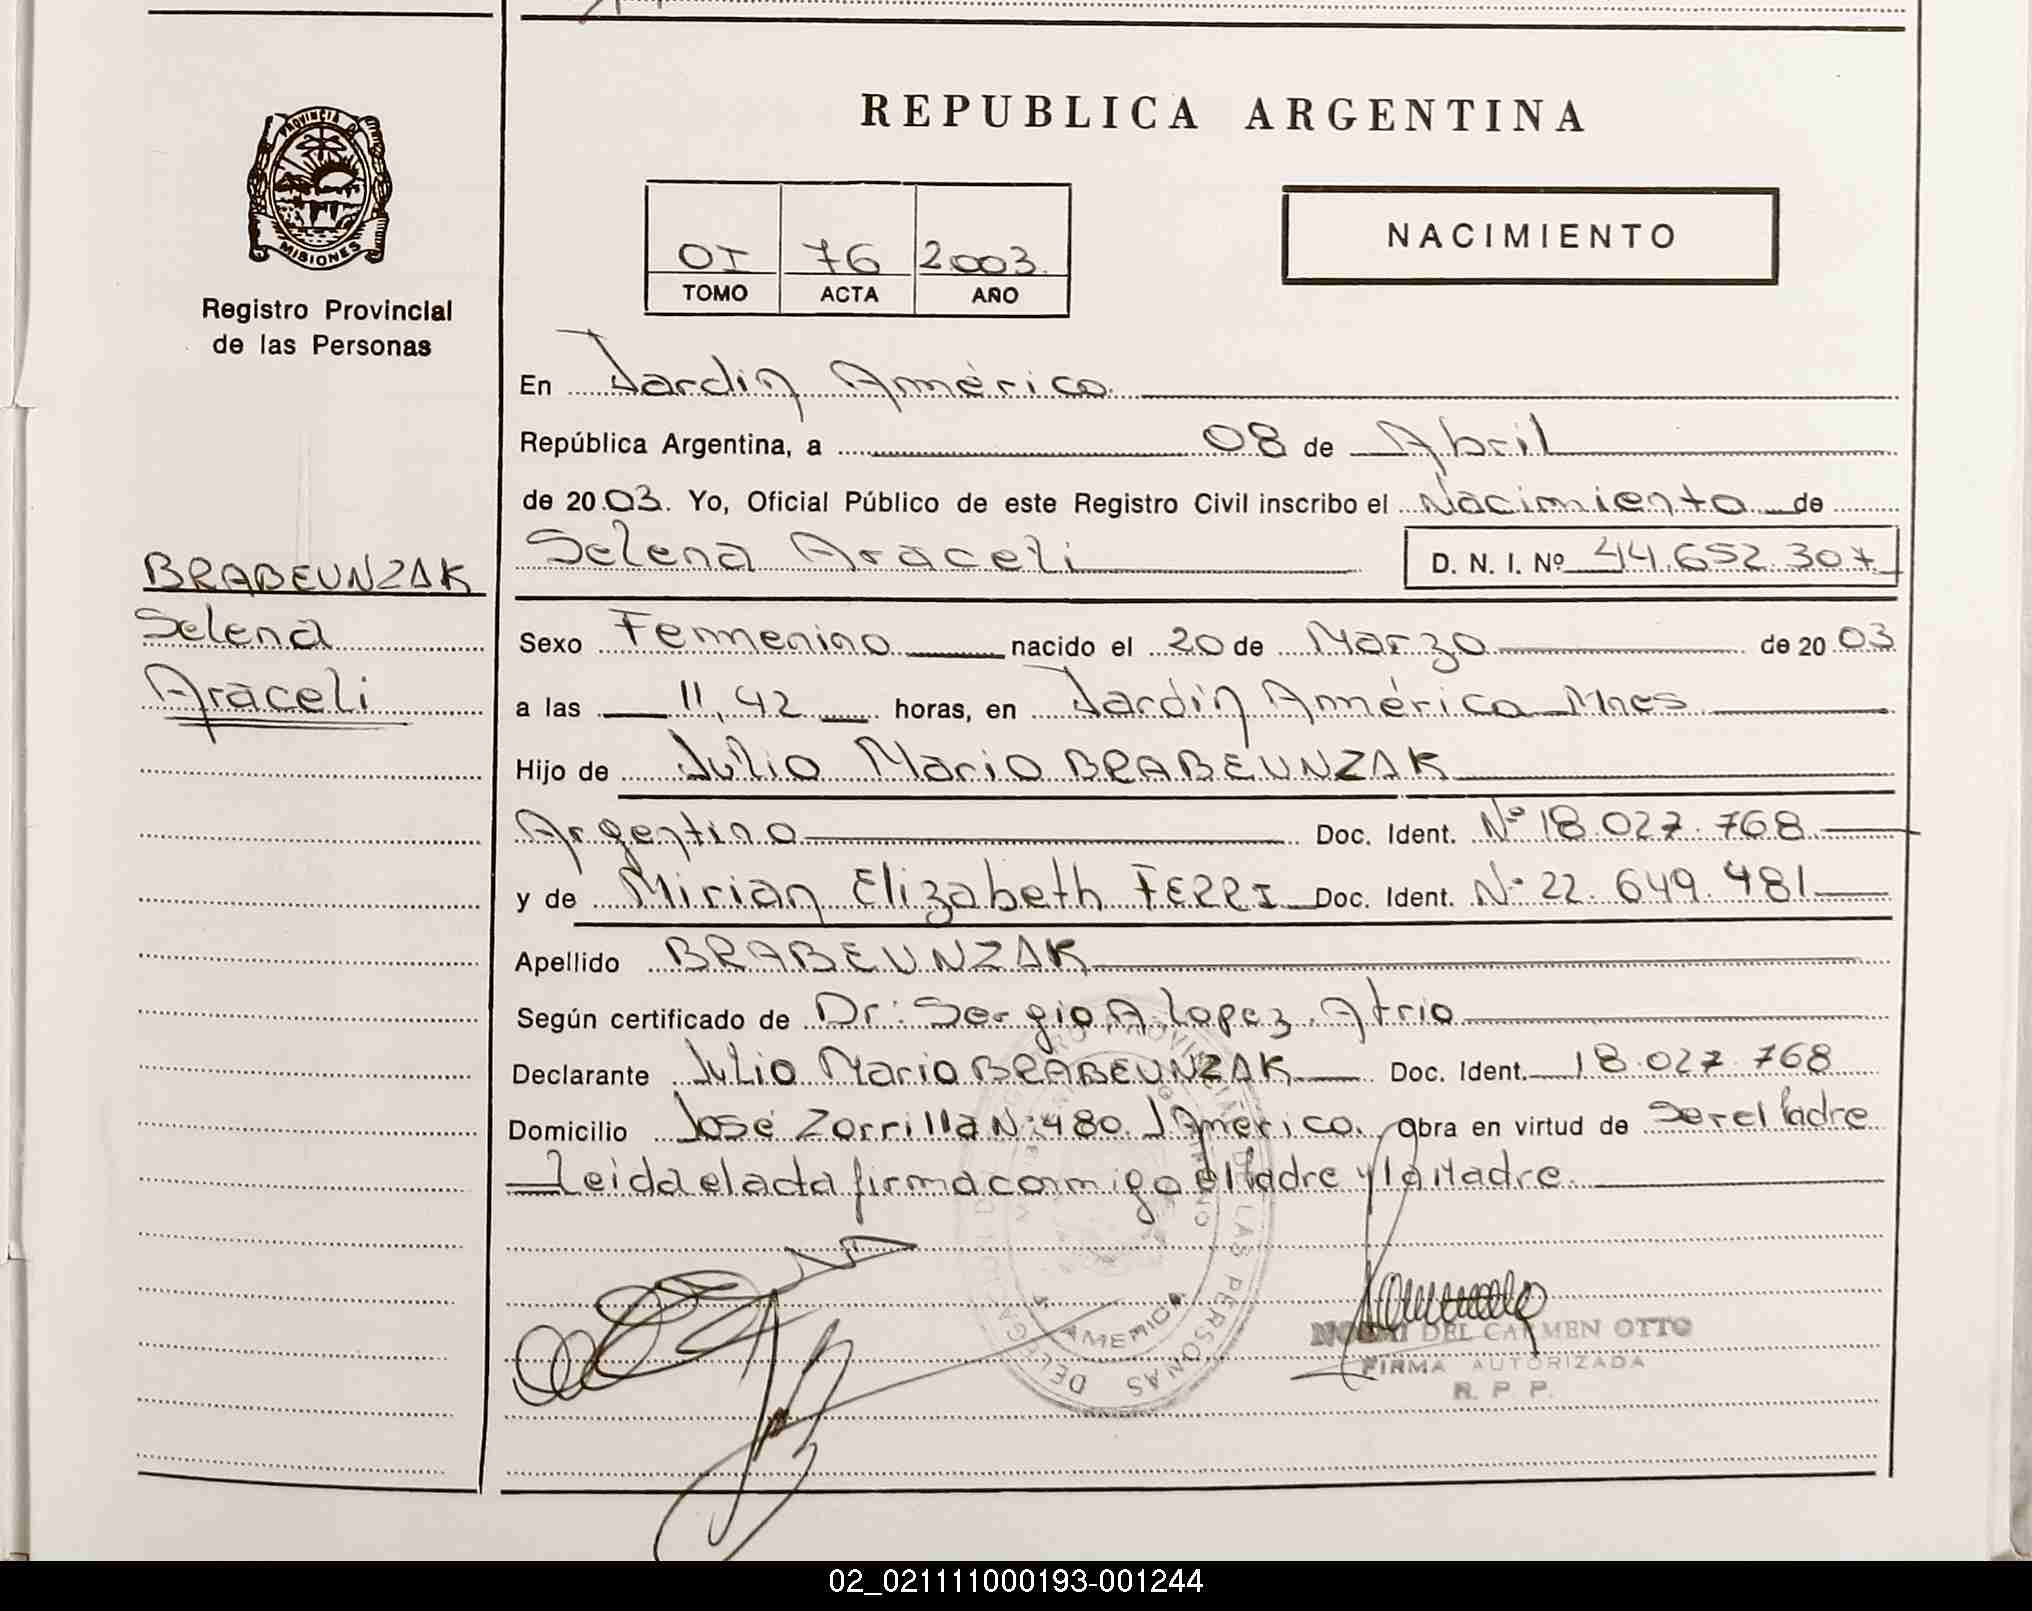 REPUBLICA ARGENTINA
PROVINCIA D
MISIONES
Registro Provincial
de las Personas
NACIMIENTO
OI 76 2003.
TOMO ACTA AÑO
En Jardín América.
República Argentina, a 08 de Abril
de 2003. Yo, Oficial Público de este Registro Civil inscribo el Nacimiento de
Selena Araceli D. N. I. Nº 44.652.307
BRABEUNZAK
Selena
Araceli
Sexo Femenino nacido el 20 de Marzo de 2003
a las 11,42 horas, en Jardín América Mnes
Hijo de Julio Mario BRABEUNZAK
Argentino Doc. Ident. Nº 18.027.768
y de Mirian Elizabeth FERRI Doc. Ident. Nº 22.649.481
Apellido BRABEUNZAK
Según certificado de Dr: Sergio A. Lopez Atrio
Declarante Julio Mario BRABEUNZAK Doc. Ident. 18.027.768
Domicilio José Zorrilla Nº 480. J América. Obra en virtud de Ser el Padre
Leida el acta firma conmigo el Padre y la Madre.
LAS PERSONAS
AMERICA
DEL CARMEN OTTO
FIRMA AUTORIZADA
R. P. P.
02_021111000193-001244